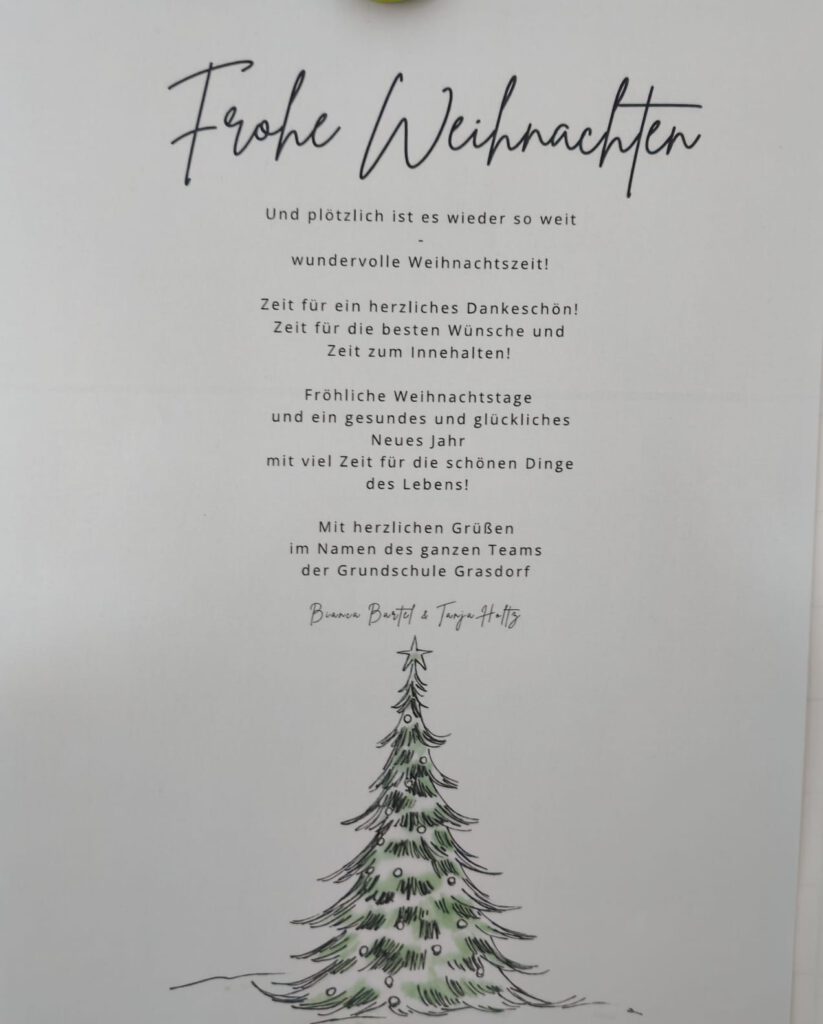 Frohe Weihnachten
Und plötzlich ist es wieder so weit
-
wundervolle Weihnachtszeit!
Zeit für ein herzliches Dankeschön!
Zeit für die besten Wünsche und
Zeit zum Innehalten!
Fröhliche Weihnachtstage
und ein gesundes und glückliches
Neues Jahr
mit viel Zeit für die schönen Dinge
des Lebens!
Mit herzlichen Grüßen
im Namen des ganzen Teams
der Grundschule Grasdorf
Bianca Bartel & Tanja Holtz